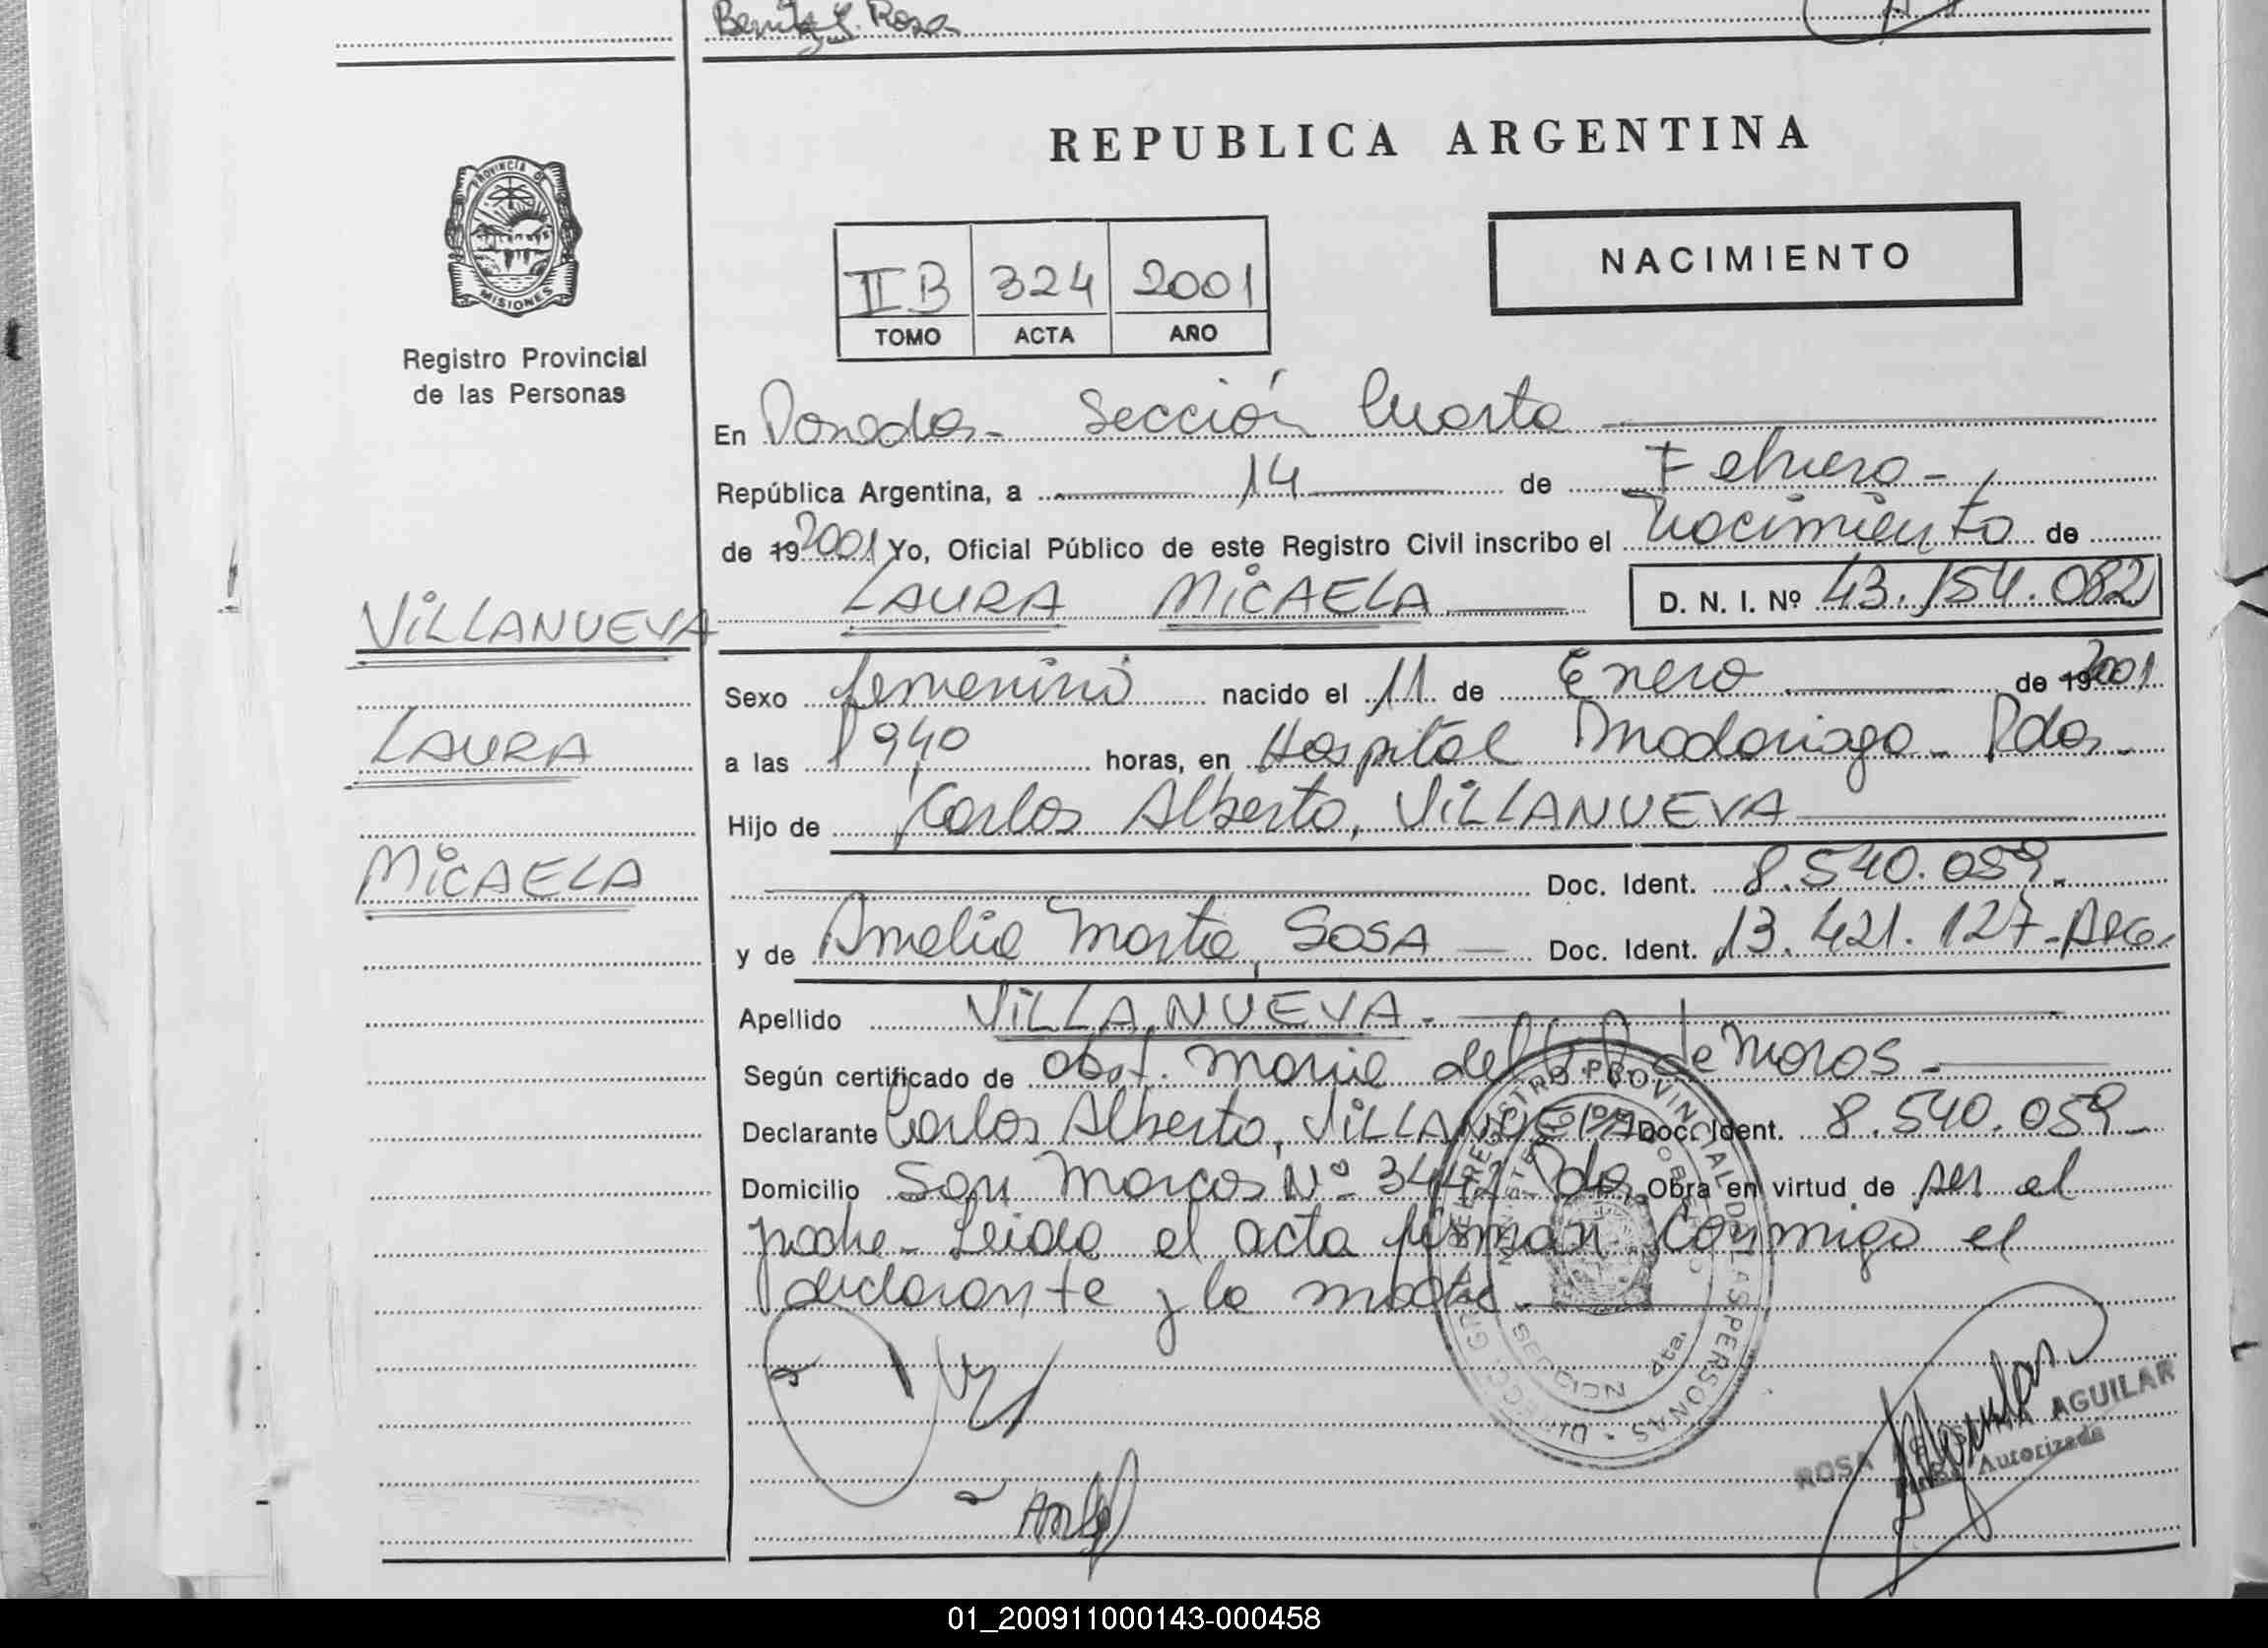 Benita J. Rosa
REPUBLICA ARGENTINA
PROVINCIA DE
MISIONES
Registro Provincial
de las Personas
NACIMIENTO
II B 324 2001
TOMO ACTA AÑO
En Posadas - Sección Cuarta
República Argentina, a 14 de Febrero -
de 19 2001 Yo, Oficial Público de este Registro Civil inscribo el Nacimiento de
VILLANUEVA
LAURA MICAELA D. N. I. Nº 43.154.082
Sexo femenino nacido el 11 de Enero de 19 2001
LAURA
a las 9,40 horas, en Hospital Madariaga - Pdas -
Hijo de Carlos Alberto, VILLANUEVA
MICAELA
Doc. Ident. 8.540.059 -
y de Amelia Marta, SOSA Doc. Ident. 13.421.127 - ARG.
Apellido VILLANUEVA -
Según certificado de obst. Maria del de Moros -
Declarante Carlos Alberto, VILLANUEVA Doc. Ident. 8.540.059 -
Domicilio San Marcos Nº 3442 Pdas, Obra en virtud de ser el
padre - Leida el acta firman conmigo el
declarante y la madre.
DIRECC. GRAL. DEL REGISTRO PROVINCIAL DE LAS PERSONAS
MINISTERIO DE GOBIERNO
SECCION 4ta.
ROSA AGUILAR
Autorizada
01_200911000143-000458